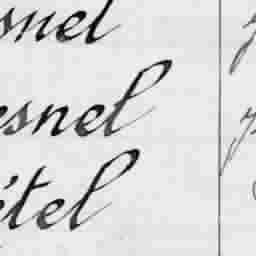 snel
esnel
étel